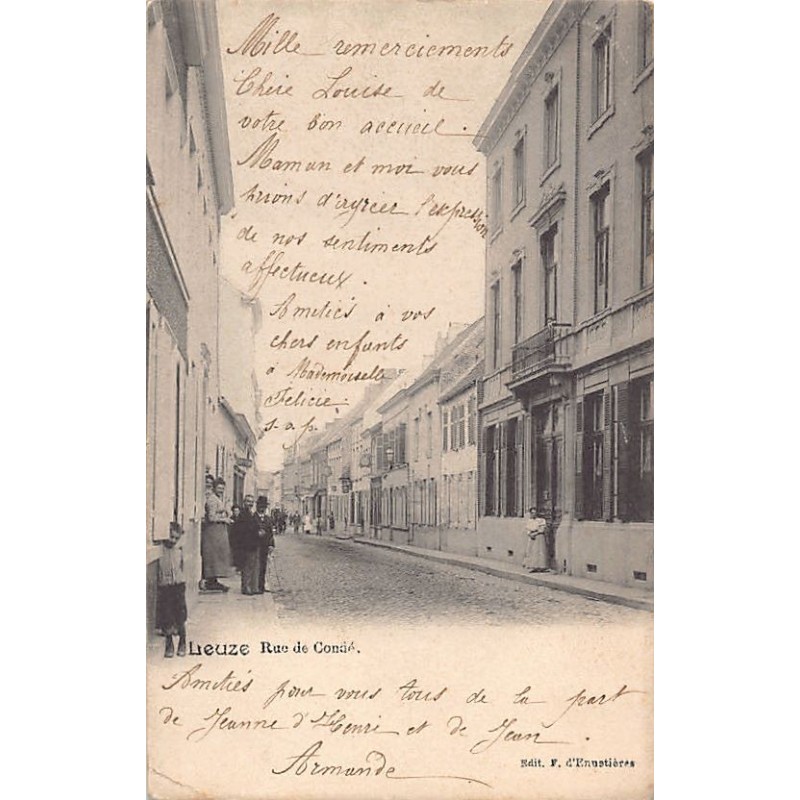 Mille remerciements
Chère Louise de
votre bon accueil.
Maman et moi vous
prions d'agréer l'expression
de nos sentiments
affectueux.
Amitiés à vos
chers enfants
à Mademoiselle
Félicie.
s.a.p.
Leuze Rue de Condé.
Amitiés pour vous tous de la part
de Jeanne d'Henri et de Jean.
Armande
Edit. F. d'Enustières